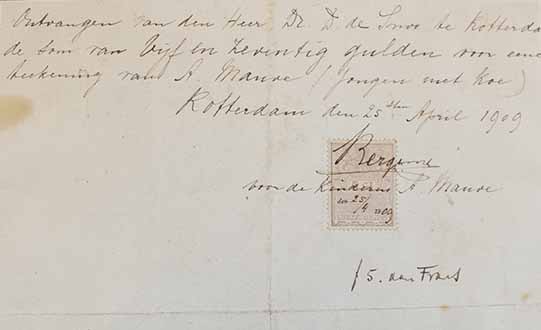 Ontvangen van den Heer Dr. D. de Snoo te Rotterda
de som van Vijf en zeventig gulden voor eene
teekening van A. Mauve (Jongen met Koe)
Rotterdam den 25sten April 1909
voor de Kinderen A. Mauve
25/4 1909
f 5. aan Frans